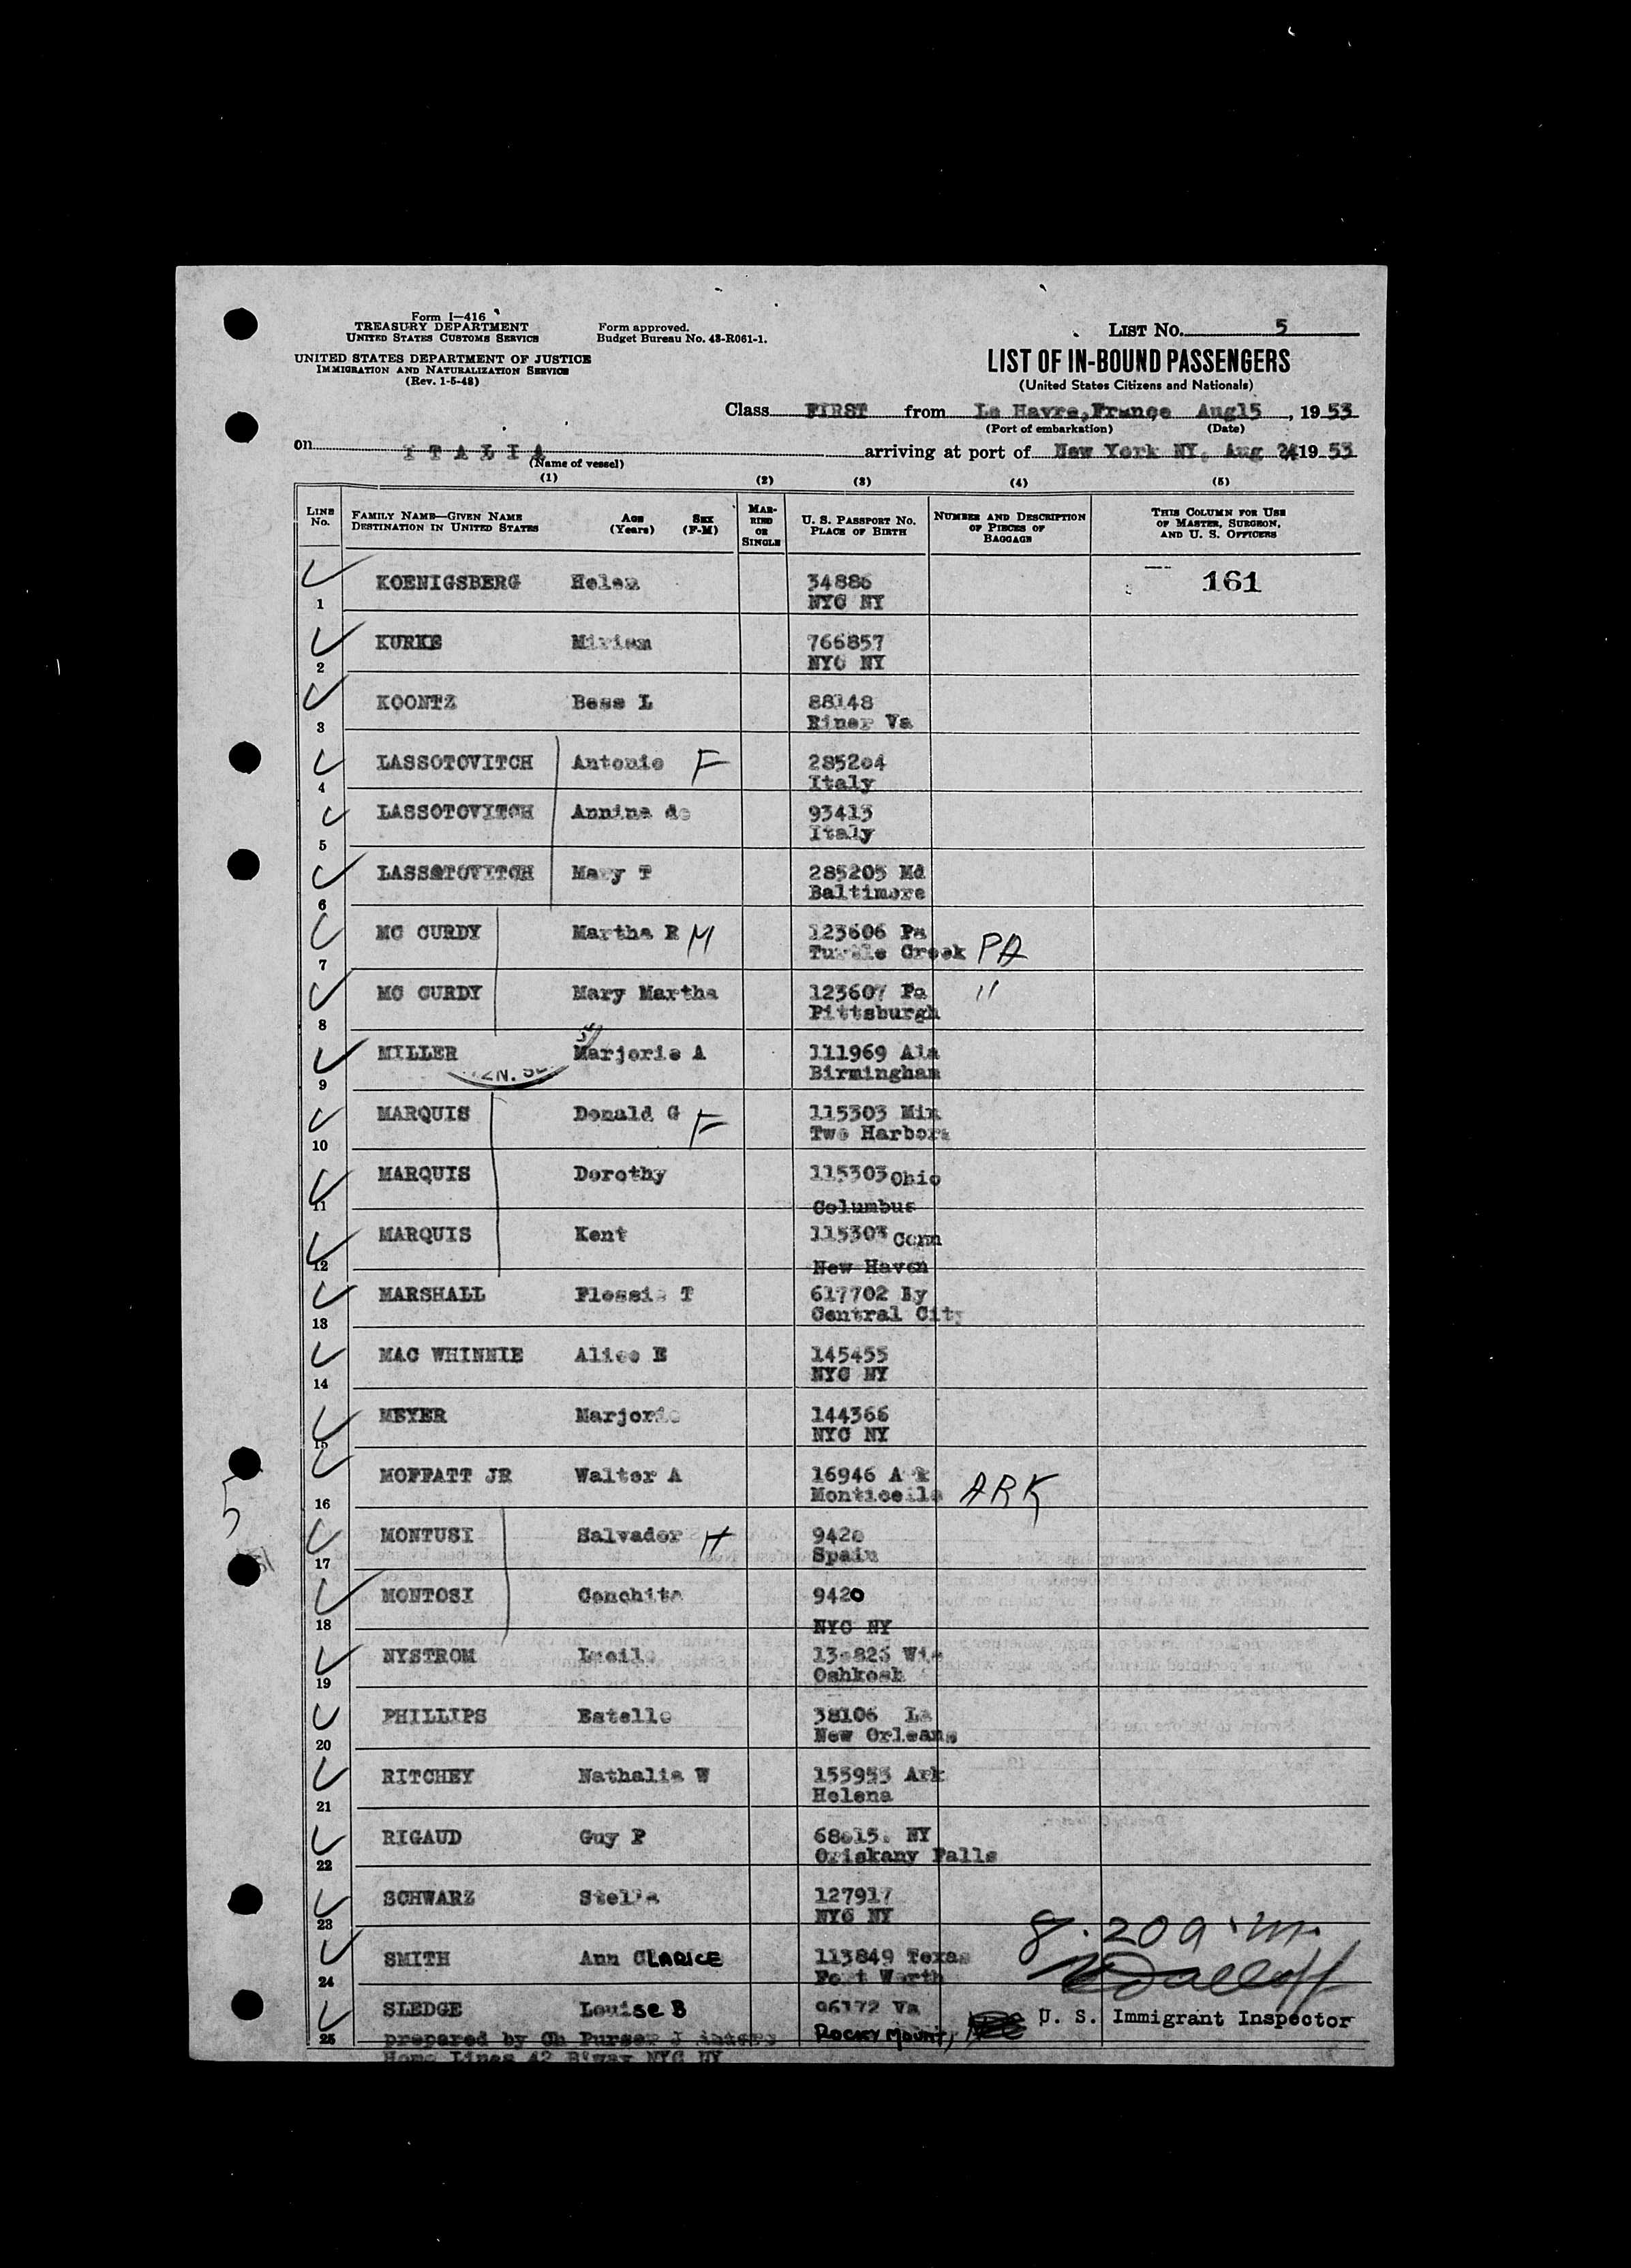 Form I—416
TREASURY DEPARTMENT
UNITED STATES CUSTOMS SERVICE
Form approved.
Budget Bureau No. 43-R061-1.
UNITED STATES DEPARTMENT OF JUSTICE
IMMIGRATION AND NATURALIZATION SERVICE
(Rev. 1-5-48)
LIST No. 5
LIST OF IN-BOUND PASSENGERS
(United States Citizens and Nationals)
Class FIRST from Le Havre,France Aug15, 1953
(Port of embarkation) (Date)
on ITALIA arriving at port of New York NY, Aug 24 1953
(Name of vessel)
(1) (2) (3) (4) (5)
LINE No. FAMILY NAME—GIVEN NAME DESTINATION IN UNITED STATES AGE (Years) SEX (F-M) MARRIED OR SINGLE U. S. PASSPORT No. PLACE OF BIRTH NUMBER AND DESCRIPTION OF PIECES OF BAGGAGE THIS COLUMN FOR USE OF MASTER, SURGEON, AND U. S. OFFICERS
KOENIGSBERG Helen 34886 161
1 NYC NY
KURKE Miriam 766857
2 NYC NY
KOONTZ Bess L 88148
3 Riner Va
LASSOTOVITCH Antonio F 285204
4 Italy
LASSOTOVITCH Annina de 93413
5 Italy
LASSOTOVITCH Mary T 285205 Md
6 Baltimore
MC CURDY Martha R M 123606 Pa
7 Turtle Creek PA
MC CURDY Mary Martha 123607 Pa "
8 Pittsburgh
MILLER Marjorie A 111969 Ala
9 Birmingham
MARQUIS Donald G F 115303 Min
10 Two Harbors
MARQUIS Dorothy 115303 Ohio
11 Columbus
MARQUIS Kent 115303 Conn
12 New Haven
MARSHALL Flossie T 617702 Ky
13 Central City
MAC WHINNIE Alice E 145455
14 NYC NY
MEYER Marjorie 144366
15 NYC NY
MOFFATT JR Walter A 16946 Ark
16 Monticello ARK
MONTUSI Salvador H 9420
17 Spain
MONTOSI Conchita 9420
18 NYC NY
NYSTROM Lucile 130826 Wis
19 Oshkosh
PHILLIPS Estelle 38106 La
20 New Orleans
RITCHEY Nathalie W 155953 Ark
21 Helena
RIGAUD Guy P 68015. NY
22 Oriskany Falls
SCHWARZ Stella 127917
23 NYC NY
8.20 a.m.
SMITH Ann CLARICE 113849 Texas
24 Fort Worth
SLEDGE Louise B 96172 Va
U. S. Immigrant Inspector
25 prepared by Ch Purser J ROCKY MOUNT,
Home Lines 42 B'way NYC NY